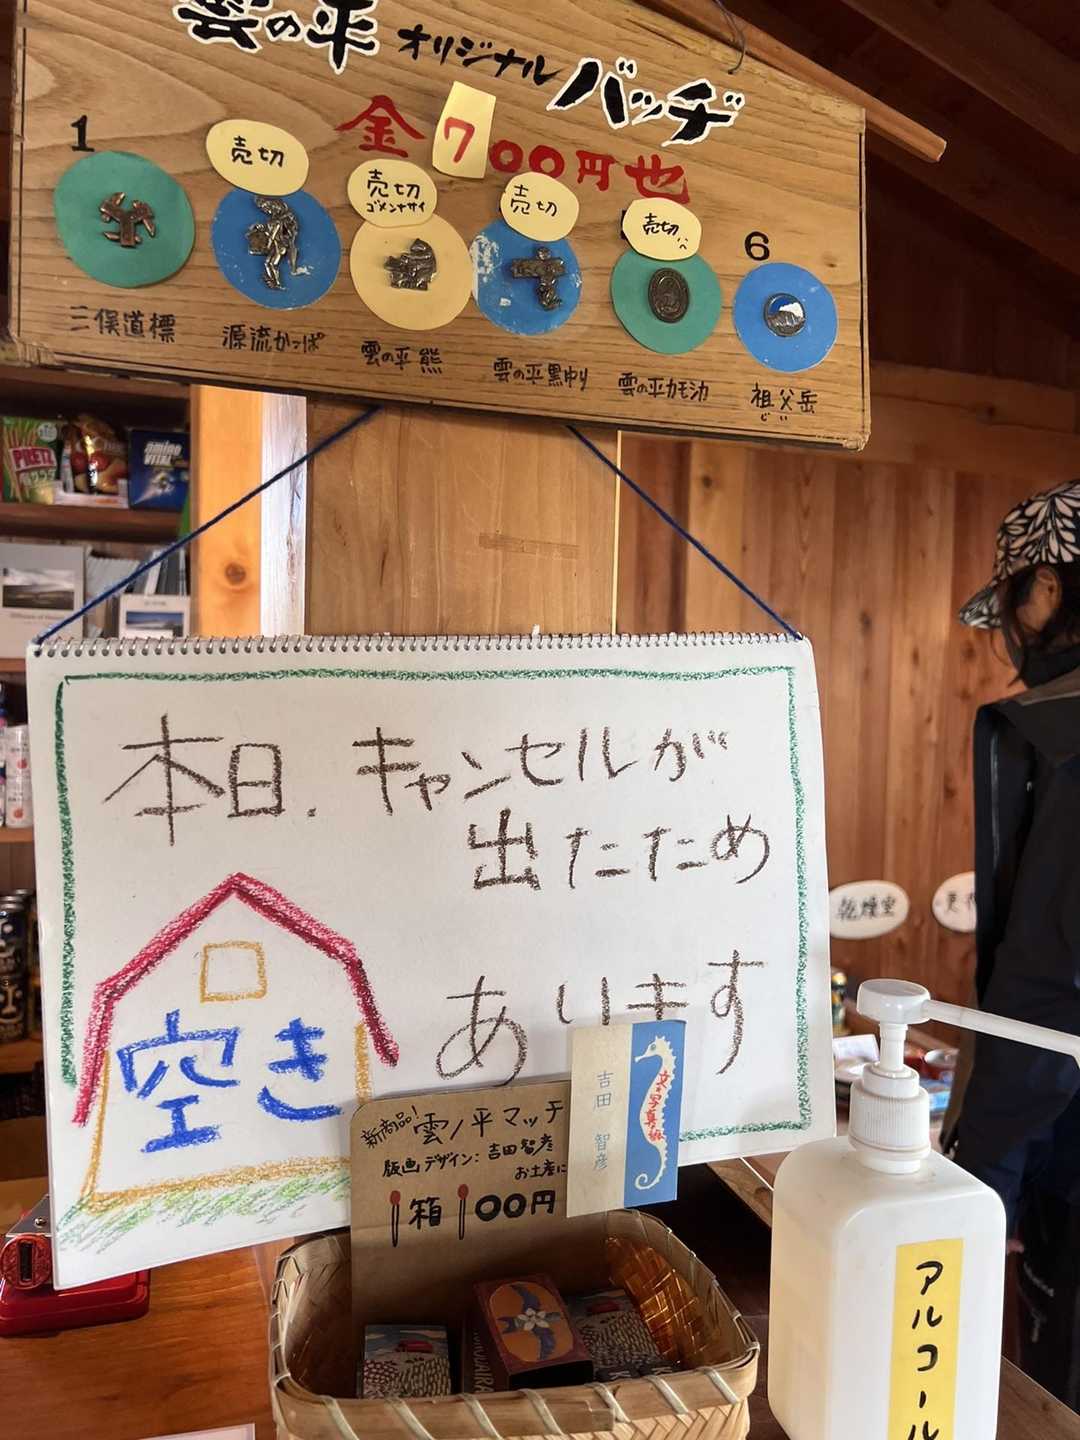 雲の平 オリジナル バッヂ
金700円也
1
売切
売切
ゴメンナサイ
売切
売切
6
三俣道標
源流かっぱ
雲の平 熊
雲の平黒ゆり
雲の平カモシカ
祖父岳
じい
PRETZ
amino
VITAL
本日、キャンセルが
出たため
あります
空き
乾燥室
新商品!
雲ノ平マッチ
版画デザイン:吉田智彦
お土産に
1箱100円
吉田 智彦
文・写真・板
アルコール